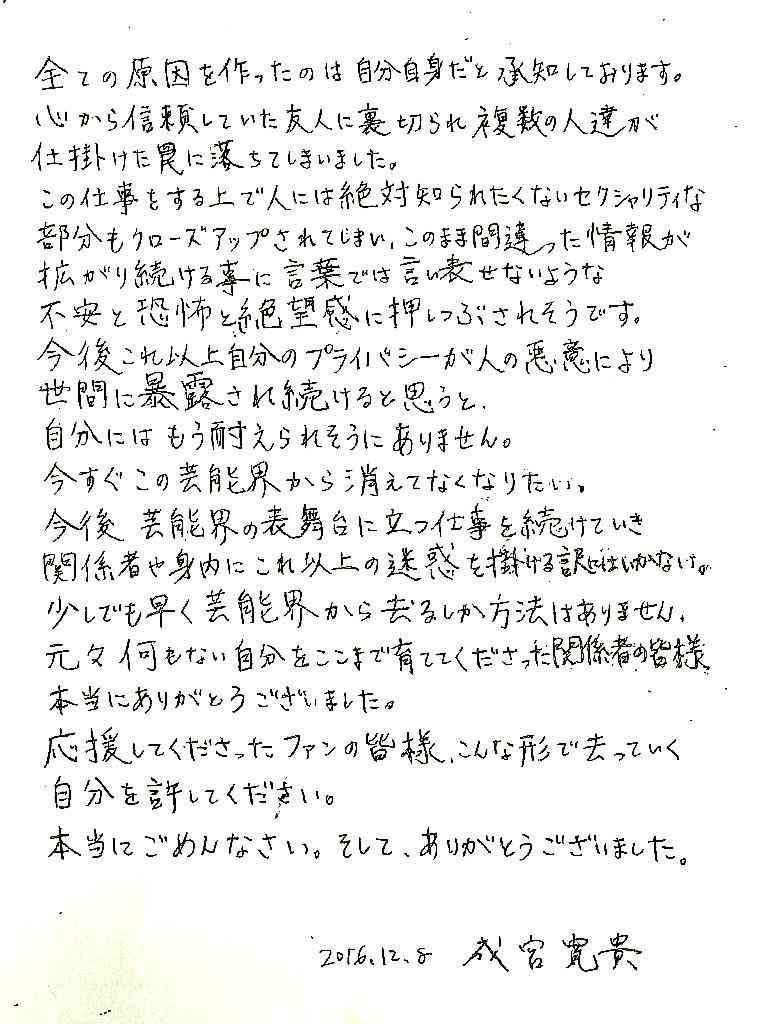 全ての原因を作ったのは自分自身だと承知しております。
心から信頼していた友人に裏切られ複数の人達が
仕掛けた罠に落ちてしまいました。
この仕事をする上で人には絶対知られたくないセクシャリティな
部分もクローズアップされてしまい、このまま間違った情報が
拡がり続ける事に言葉では言い表せないような
不安と恐怖と絶望感に押しつぶされそうです。
今後これ以上自分のプライバシーが人の悪意により
世間に暴露され続けると思うと、
自分にはもう耐えられそうにありません。
今すぐこの芸能界から消えてなくなりたい。
今後芸能界の表舞台に立つ仕事を続けていき
関係者や身内にこれ以上の迷惑を掛ける訳にはいかない。
少しでも早く芸能界から去るしか方法はありません、
元々何もない自分をここまで育ててくださった関係者の皆様
本当にありがとうございました。
応援してくださったファンの皆様、こんな形で去っていく
自分を許してください。
本当にごめんなさい。そして、ありがとうございました。
2016.12.8 成宮寛貴